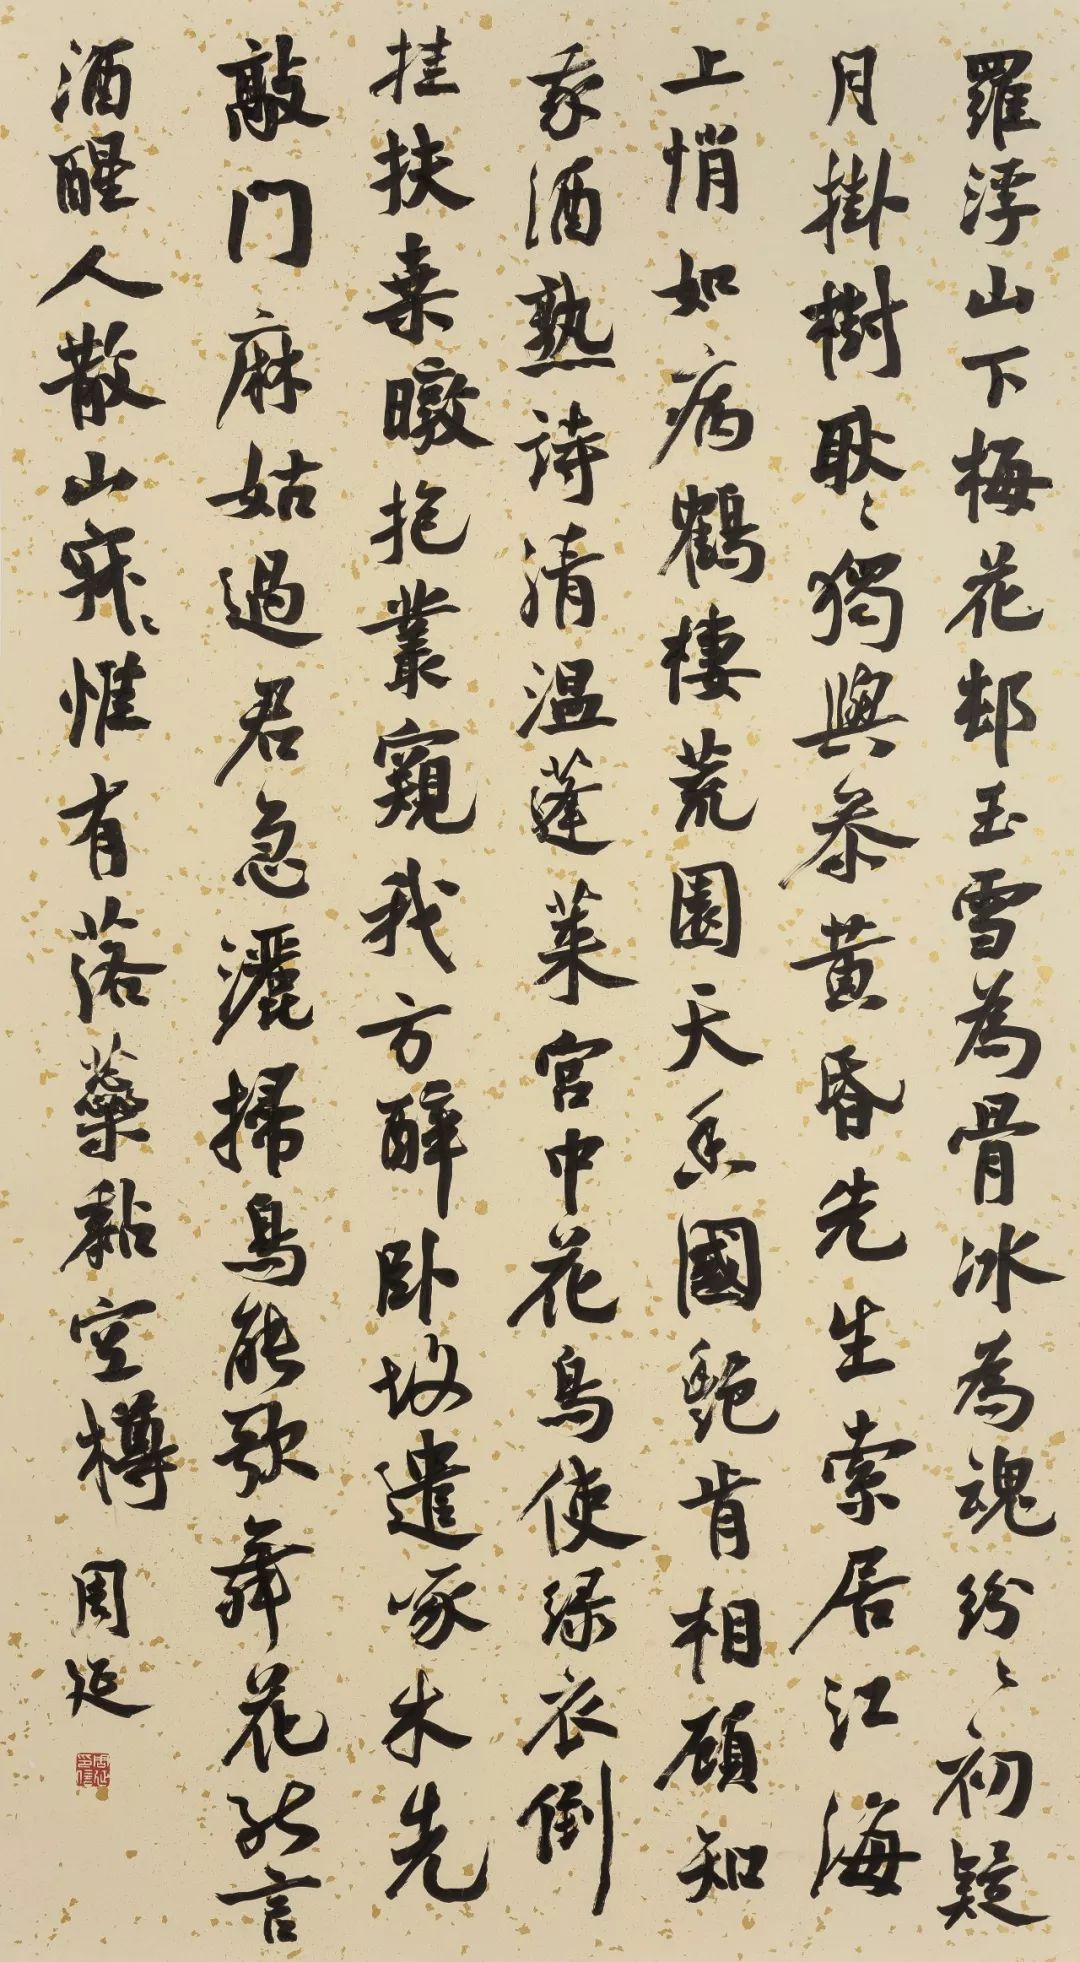 羅浮山下梅花邨玉雪為骨冰為魂紛〻初疑
月掛樹耿〻獨與參黃昏先生索居江海
上悄如病鶴棲荒園天香國艷肯相顧知
我酒熟詩清溫蓬萊宮中花鳥使綠衣倒
挂扶桒暾抱叢窺我方醉臥故遣啄木先
敲門麻姑過君急灑掃鳥能歌舞花能言
酒醒人散山寂〻惟有落蘂黏空樽
周延